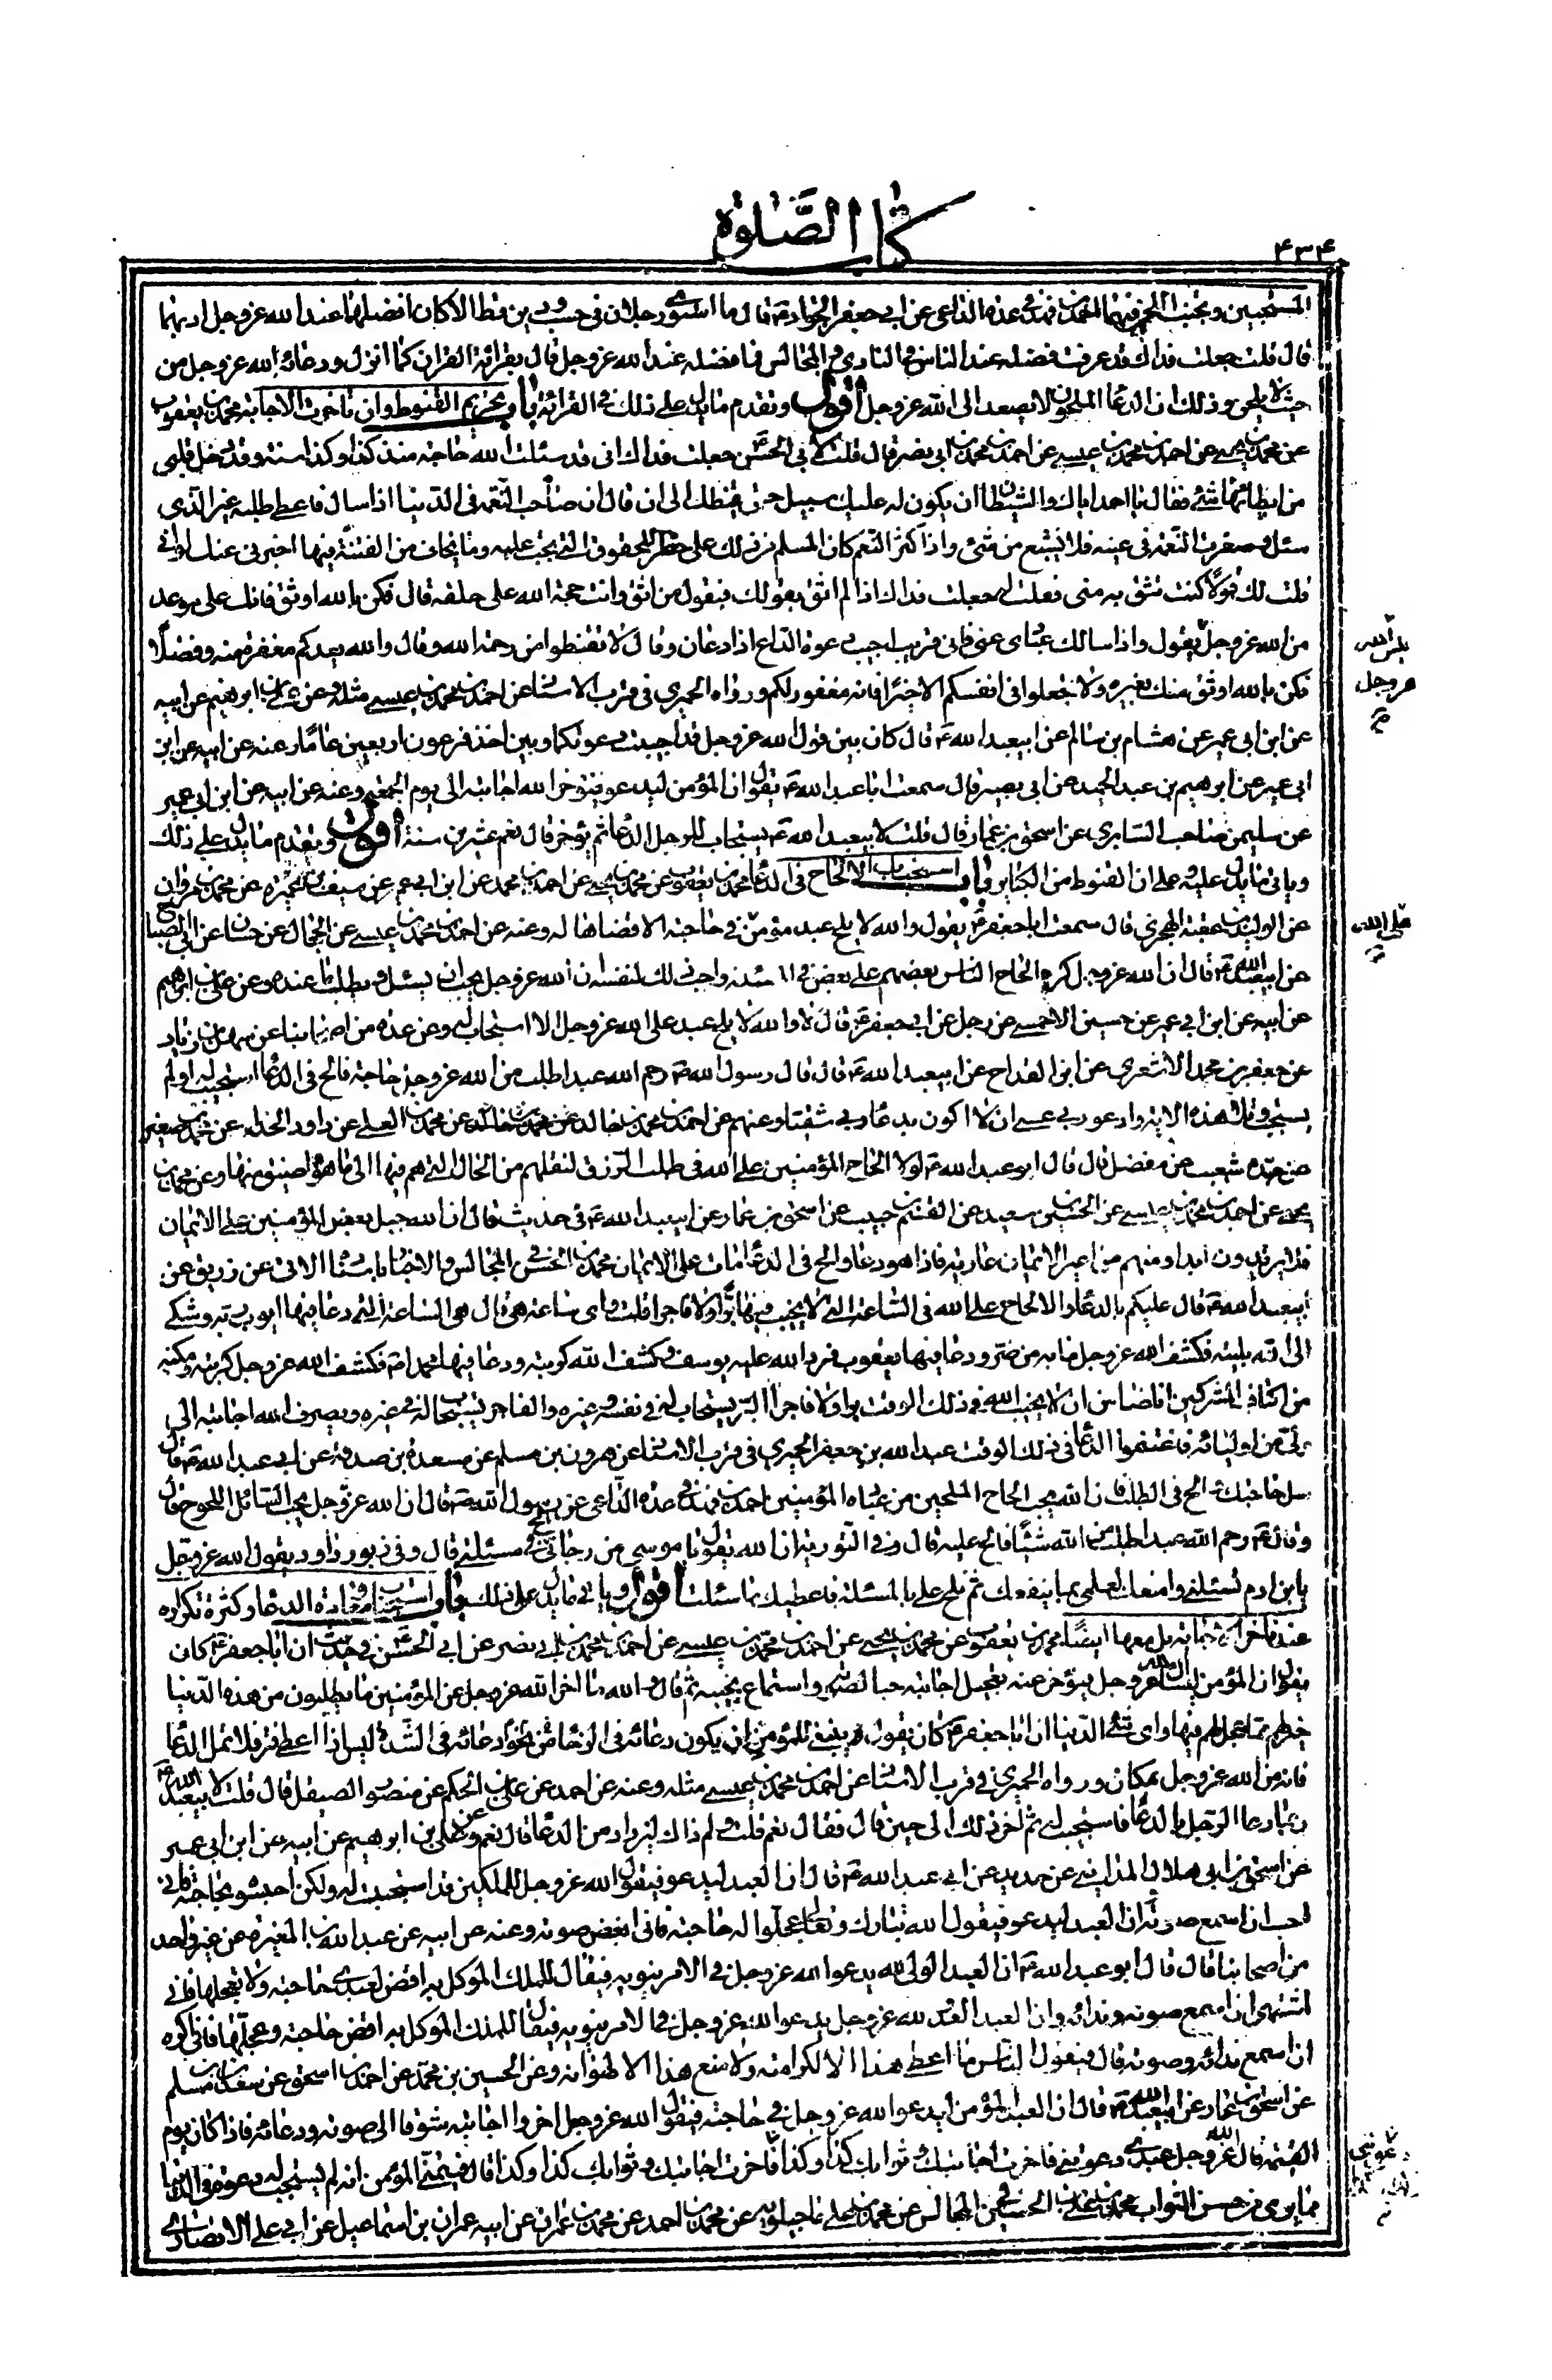 كتاب الصّلوة
۴۳۴
قال قلت جعلت فداك قد عرفت فضله عند الناس في النادي و المجالس فما فضله عند الله عزوجل قال بقرائة القران كما انزل ودعائه الله عزوجل من
حيث لا يلحن وذلك ان الدعا الملحون لا يصعد الى الله عزوجل اقول وتقدم ما يدل على ذلك في القرائة باب تحريم القنوط وان تاخرت الاجابة محمد بن يعقوب
عن محمد بن يحيى عن احمد بن محمد بن عيسى عن احمد بن محمد بن ابي نصر قال قلت لابي الحسن ع جعلت فداك اني قد سئلت الله حاجة منذ كذا وكذا سنة وقد دخل قلبي
من ابطائها شئ فقال يا احمد اياك والشيطان ان يكون له عليك سبيل حتى يقنطك الى ان قال ان صاحب النعمة في الدنيا اذا سال فاعطي طلب غير الذي
سئل وصغرت النعمة في عينه فلا يشبع من شئ واذا كثر النعم كان المسلم من ذلك على خطر للحقوق التي يجب عليه وما يخاف من الفتنة فيها اخبرني عنك لو اني
قلت لك قولا كنت تثق به مني فقلت له جعلت فداك اذا لم اثق بقولك فبقول من اثق وانت حجة الله على خلقه قال فكن بالله اوثق فانك على موعد
من الله عزوجل يقول واذا سالك عبادى عني فاني قريب اجيب دعوة الداع اذا دعان وقال لا تقنطوا من رحمة الله وقال والله يعدكم مغفرة منه وفضلا
فكن بالله اوثق منك بغيره ولا تجعلوا في انفسكم الا خيرا فانه مغفور لكم ورواه الحميري في قرب الاسناد عن احمد بن محمد بن عيسى مثله وعن علي بن ابراهيم عن ابيه
عن ابن ابي عمير عن هشام بن سالم عن ابيعبد الله ع قال كان بين قول الله عزوجل قد اجيبت دعوتكما وبين اخذ فرعون اربعين عاما وعنه عن ابيه عن ابن
ابي عمير عن ابرهيم بن عبد الحميد عن ابي بصير قال سمعت ابا عبد الله ع يقول ان المؤمن ليدعو فيؤخر الله اجابته الى يوم الجمعة وعنه عن ابيه عن ابن ابي عمير
عن سليمن صاحب السابري عن اسحق بن عمار قال قلت لابيعبد الله ع يستجاب للرجل الدعا ثم يؤخر قال نعم عشرين سنة اقول وتقدم ما يدل على ذلك
وياتي ما يدل عليه وعلى ان القنوط من الكبائر باب استحباب الالحاح في الدعا محمد بن يعقوب عن محمد بن يحيى عن احمد بن محمد عن ابن ابي عمير عن سيف بن عميرة عن محمد بن مروان
عن الوليد بن عقبة الهجري قال سمعت ابا جعفر ع يقول والله لا يلح عبد مؤمن في حاجته الا قضاها له وعنه عن احمد بن محمد بن عيسى عن الحجال عن حسان عن ابي الصباح
عن ابيعبد الله ع قال ان الله عزوجل كره الحاح الناس بعضهم على بعض في المسئلة واحب ذلك لنفسه ان الله عزوجل يحب ان يسئل ويطلب ما عنده وعن علي بن ابراهيم
عن ابيه عن ابن ابي عمير عن حسين الاحمسي عن رجل عن ابي جعفر ع قال لا والله لا يلح عبد على الله عزوجل الا استجاب له وعن عدة من اصحابنا عن سهل بن زياد
عن جعفر بن محمد الاشعري عن ابن القداح عن ابيعبد الله ع قال قال رسول الله ص رحم الله عبدا طلب من الله عزوجل حاجة فالح في الدعا استجيب له او لم
يستجب وتلا هذه الاية وادعو ربي عسى ان لا اكون بدعاء ربي شقيا وعنهم عن احمد بن محمد بن خالد
عن شعيب عن مفضل قال قال ابو عبد الله ع لولا الحاح المؤمنين على الله في طلب الرزق لنقلهم من الحال التي هم فيها الى ما هو اضيق منها وعن محمد بن
يحيى عن احمد بن محمد بن عيسى عن الحسين بن سعيد عن القسم بن حبيب عن اسحق بن عمار عن ابيعبد الله ع في حديث قال ان الله جبل بعض المؤمنين على الايمان
فلا يرتدون ابدا ومنهم من اعير الايمان عارية فاذا هو دعا والح في الدعا مات على الايمان محمد بن الحسن في المجالس والاخبار باسناده الاتي عن زريق عن
ابيعبد الله ع قال عليكم بالدعاء والالحاح على الله في الساعة التي لا يخيب فيها برا ولا فاجرا قلت واى ساعة هي قال هي الساعة التي دعا فيها ايوب ربه وشكى
الى الله بليته فكشف الله عزوجل ما به من ضر ودعا فيها يعقوب فرد الله عليه يوسف وكشف الله كربته ودعا فيها محمد ص فكشف الله عزوجل كربته ومكنه
من اكتاف المشركين انا ضامن ان لا يخيب الله في ذلك الوقت برا ولا فاجرا البر يستجاب له في نفسه وغيره والفاجر يستجاب له في غيره ويصرف الله اجابته الى
ولي من اوليائه فاغتنموا الدعا في ذلك الوقت عبد الله بن جعفر الحميري في قرب الاسناد عن هرون بن مسلم عن مسعدة بن صدقة عن ابي عبد الله ع قال
سل حاجتك والح في الطلب فان الله يحب الحاح الملحين من عباده المؤمنين احمد بن فهد في عدة الداعي عن رسول الله ص قال ان الله عزوجل يحب السائل اللحوح قال
وقال ع رحم الله عبدا طلب من الله شيئا فالح عليه قال وفي التورية ان الله يقول يا موسى من رجاني الح في مسئلتي قال وفي زبور داود يقول الله عزوجل
يا بن ادم تسئلني وامنعك لعلمي بما ينفعك ثم تلح علي بالمسئلة فاعطيك ما سئلت اقول وياتي ما يدل على ذلك باب استحباب معاودة الدعا وكثرة تكراره
عند تاخر الاجابة بل معها ايضا محمد بن يعقوب عن محمد بن يحيى عن احمد بن محمد بن عيسى عن احمد بن محمد بن ابي نصر عن ابي الحسن ع في حديث ان ابا جعفر ع كان
يقول ان المؤمن ليسال الله عزوجل فيؤخر عنه تعجيل اجابته حبا لصوته واستماع نحيبه ثم قال والله ما اخر الله عزوجل عن المؤمنين ما يطلبون من هذه الدنيا
خير لهم مما عجل لهم فيها واى شئ الدنيا ان ابا جعفر ع كان يقول ينبغي للمؤمن ان يكون دعائه في الرخا نحوا من دعائه في الشدة ليس اذا اعطي فتر فلا تمل الدعا
فانه من الله عزوجل بمكان ورواه الحميري في قرب الاسناد عن احمد بن محمد بن عيسى مثله وعنه عن احمد عن علي بن الحكم عن منصور الصيقل قال قلت لابيعبد الله ع
ربما دعا الرجل بالدعا فاستجيب له ثم اخر ذلك الى حين قال فقال نعم قلت ولم ذاك ليزداد من الدعا قال نعم وعن علي بن ابرهيم عن ابيه عن ابن ابي عمير
عن اسحق بن ابي هلال المدايني عن حديد عن ابي عبد الله ع قال ان العبد ليدعو فيقول الله عزوجل للملكين قد استجبت له ولكن احبسوه بحاجته فاني
احب ان اسمع صوته وان العبد ليدعو فيقول الله تبارك وتعالى عجلوا له حاجته فاني ابغض صوته وعنه عن ابيه عن عبد الله بن المغيرة عن غير واحد
من اصحابنا قال قال ابو عبد الله ع ان العبد الولي لله يدعو الله عزوجل في الامر ينوبه فيقال للملك الموكل به اقض لعبدى حاجته ولا تعجلها فاني
اشتهي ان اسمع صوته وندائه وان العبد العدو لله عزوجل يدعو الله عزوجل في الامر ينوبه فيقال للملك الموكل به اقض حاجته وعجلها فاني اكره
ان اسمع ندائه وصوته قال فيقول الناس ما اعطي هذا الا لكرامته ولا منع هذا الا لهوانه وعن الحسين بن محمد عن احمد بن اسحق عن سعدان بن مسلم
عن اسحق بن عمار عن ابيعبد الله ع قال ان العبد المؤمن ليدعو الله عزوجل في حاجته فيقول الله عزوجل اخروا اجابته شوقا الى صوته ودعائه فاذا كان يوم
القيمة قال الله عزوجل عبدي دعوتني فاخرت اجابتك وثوابك كذا وكذا فاخرت اجابتك وثوابك كذا وكذا قال فيتمنى المؤمن انه لم يستجب له دعوة في الدنيا
مما يرى من حسن الثواب محمد بن علي بن الحسين في المجالس عن محمد بن علي ماجيلويه عن محمد بن احمد عن محمد بن عمران عن ابيه عمران بن اسماعيل عن ابي علي الانصاري